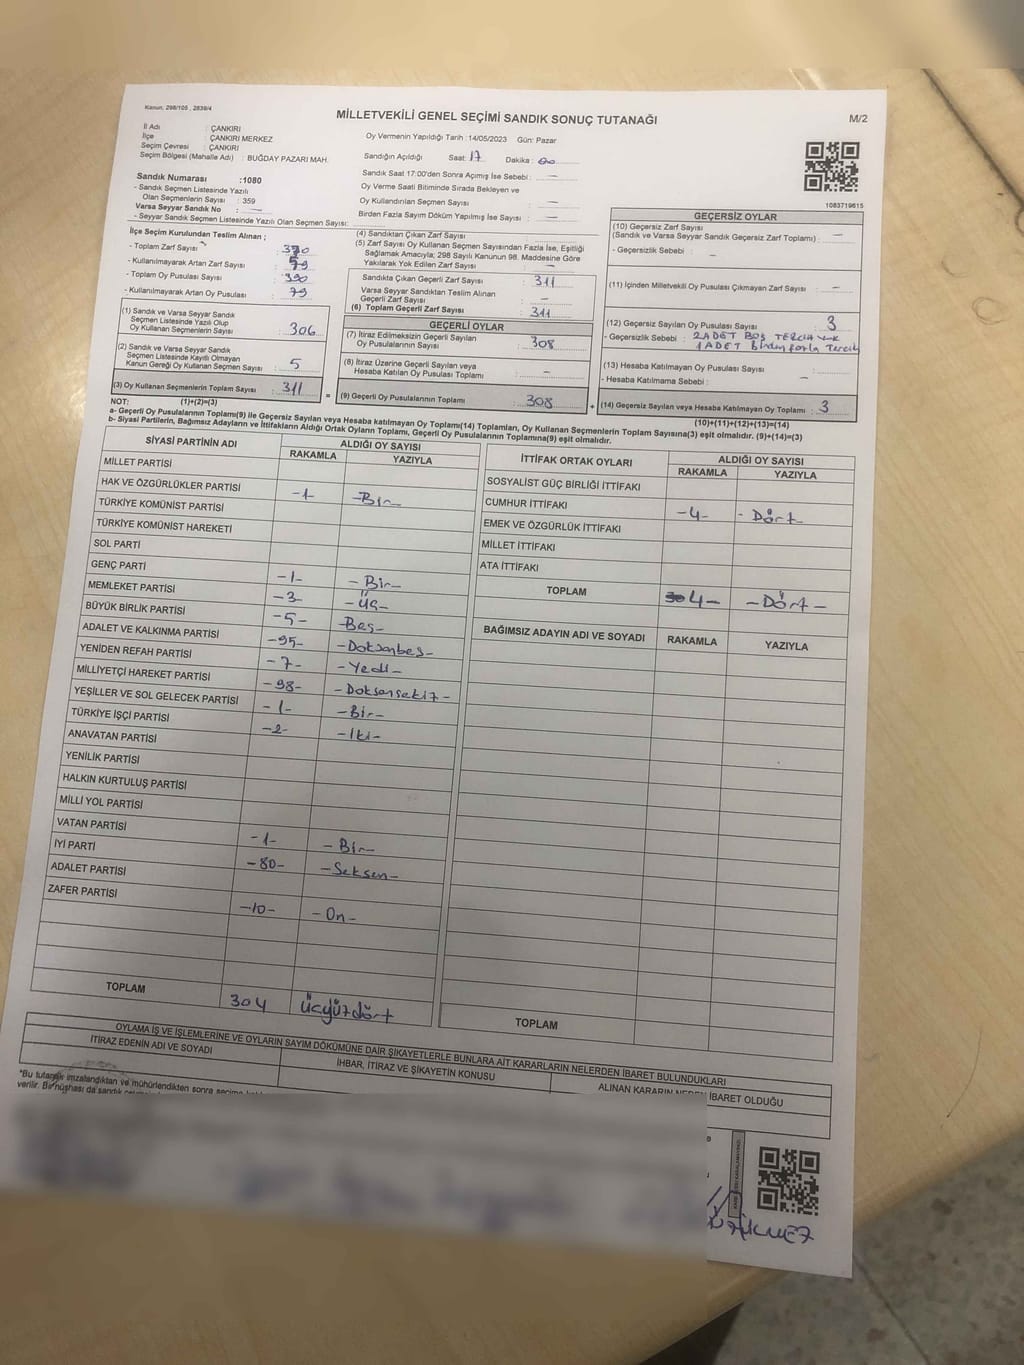 Kanun, 298/105 , 2839/4
MİLLETVEKİLİ GENEL SEÇİMİ SANDIK SONUÇ TUTANAĞI
M/2
İl Adı : ÇANKIRI
İlçe : ÇANKIRI MERKEZ
Seçim Çevresi : ÇANKIRI
Seçim Bölgesi (Mahalle Adı) : BUĞDAY PAZARI MAH.
Oy Vermenin Yapıldığı Tarih : 14/05/2023 Gün: Pazar
Sandığın Açıldığı Saat: 17 Dakika : 00
Sandık Saat 17:00'den Sonra Açımış İse Sebebi : —
Oy Verme Saati Bitiminde Sırada Bekleyen ve
Oy Kullandırılan Seçmen Sayısı : —
Birden Fazla Sayım Döküm Yapılmış İse Sayısı : —
1083719615
Sandık Numarası :1080
- Sandık Seçmen Listesinde Yazılı
Olan Seçmenlerin Sayısı : 359
Varsa Seyyar Sandık No : —
- Seyyar Sandık Seçmen Listesinde Yazılı Olan Seçmen Sayısı:
İlçe Seçim Kurulundan Teslim Alınan ;
- Toplam Zarf Sayısı : 390
- Kullanılmayarak Artan Zarf Sayısı : 79
- Toplam Oy Pusulası Sayısı : 390
- Kullanılmayarak Artan Oy Pusulası : 79
(1) Sandık ve Varsa Seyyar Sandık
Seçmen Listesinde Yazılı Olup
Oy Kullanan Seçmenlerin Sayısı : 306
(2) Sandık ve Varsa Seyyar Sandık
Seçmen Listesinde Kayıtlı Olmayan
Kanun Gereği Oy Kullanan Seçmen Sayısı : 5
(3) Oy Kullanan Seçmenlerin Toplam Sayısı : 311
(4) Sandıktan Çıkan Zarf Sayısı :
(5) Zarf Sayısı Oy Kullanan Seçmen Sayısından Fazla İse, Eşitliği
Sağlamak Amacıyla; 298 Sayılı Kanunun 98. Maddesine Göre
Yakılarak Yok Edilen Zarf Sayısı : —
Sandıkta Çıkan Geçerli Zarf Sayısı : 311
Varsa Seyyar Sandıktan Teslim Alınan
Geçerli Zarf Sayısı : —
(6) Toplam Geçerli Zarf Sayısı : 311
GEÇERLİ OYLAR
(7) İtiraz Edilmeksizin Geçerli Sayılan
Oy Pusulalarının Sayısı : 308
(8) İtiraz Üzerine Geçerli Sayılan veya
Hesaba Katılan Oy Pusulası Toplamı : —
= (9) Geçerli Oy Pusulalarının Toplamı : 308
GEÇERSİZ OYLAR
(10) Geçersiz Zarf Sayısı
(Sandık ve Varsa Seyyar Sandık Geçersiz Zarf Toplamı) : —
- Geçersizlik Sebebi : —
(11) İçinden Milletvekili Oy Pusulası Çıkmayan Zarf Sayısı : —
(12) Geçersiz Sayılan Oy Pusulası Sayısı : 3
- Geçersizlik Sebebi : 2 ADET BOŞ TERCİH yok
1 ADET Birden fazla Tercih
(13) Hesaba Katılmayan Oy Pusulası Sayısı :
- Hesaba Katılmama Sebebi : —
+ (14) Geçersiz Sayılan veya Hesaba Katılmayan Oy Toplamı : 3
NOT: (1)+(2)=(3)
(10)+(11)+(12)+(13)=(14)
a- Geçerli Oy Pusulalarının Toplamı(9) ile Geçersiz Sayılan veya Hesaba katılmayan Oy Toplamı(14) Toplamları, Oy Kullanan Seçmenlerin Toplam Sayısına(3) eşit olmalıdır. (9)+(14)=(3)
b- Siyasi Partilerin, Bağımsız Adayların ve İttifakların Aldığı Ortak Oyların Toplamı, Geçerli Oy Pusulalarının Toplamına(9) eşit olmalıdır.
SİYASİ PARTİNİN ADI ALDIĞI OY SAYISI
RAKAMLA YAZIYLA
MİLLET PARTİSİ
HAK VE ÖZGÜRLÜKLER PARTİSİ -1- -Bir-
TÜRKİYE KOMÜNİST PARTİSİ
TÜRKİYE KOMÜNİST HAREKETİ
SOL PARTİ
GENÇ PARTİ -1- -Bir-
MEMLEKET PARTİSİ -3- -Üç-
BÜYÜK BİRLİK PARTİSİ -5- -Beş-
ADALET VE KALKINMA PARTİSİ -95- -Doksanbeş-
YENİDEN REFAH PARTİSİ -7- -Yedi-
MİLLİYETÇİ HAREKET PARTİSİ -98- -Doksansekiz-
YEŞİLLER VE SOL GELECEK PARTİSİ -1- -Bir-
TÜRKİYE İŞÇİ PARTİSİ -2- -İki-
ANAVATAN PARTİSİ
YENİLİK PARTİSİ
HALKIN KURTULUŞ PARTİSİ
MİLLİ YOL PARTİSİ
VATAN PARTİSİ -1- -Bir-
İYİ PARTİ -80- -Seksen-
ADALET PARTİSİ
ZAFER PARTİSİ -10- -On-
TOPLAM 304 Üçyüzdört
İTTİFAK ORTAK OYLARI ALDIĞI OY SAYISI
RAKAMLA YAZIYLA
SOSYALİST GÜÇ BİRLİĞİ İTTİFAKI
CUMHUR İTTİFAKI -4- -Dört-
EMEK VE ÖZGÜRLÜK İTTİFAKI
MİLLET İTTİFAKI
ATA İTTİFAKI
TOPLAM 4- -Dört-
BAĞIMSIZ ADAYIN ADI VE SOYADI RAKAMLA YAZIYLA
TOPLAM
OYLAMA İŞ VE İŞLEMLERİNE VE OYLARIN SAYIM DÖKÜMÜNE DAİR ŞİKAYETLERLE BUNLARA AİT KARARLARIN NELERDEN İBARET BULUNDUKLARI
İTİRAZ EDENİN ADI VE SOYADI İHBAR, İTİRAZ VE ŞİKAYETİN KONUSU ALINAN KARARIN NEDEN İBARET OLDUĞU
*Bu tutanak imzalandıktan ve mühürlendikten sonra seçime
verilir. Bir nüshası da sandık